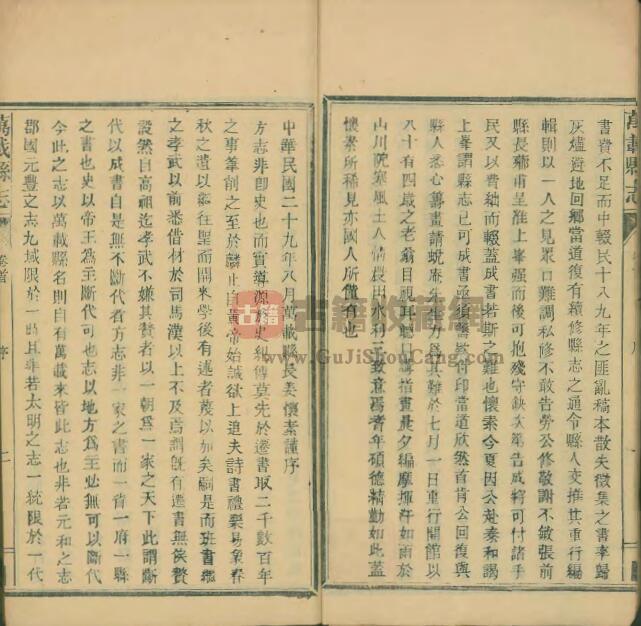 萬載縣志
書費不足而中輟民十八九年之匪亂稿本散失徵集之書率歸
灰燼避地回鄉當道復有續修縣志之通令縣人交推其重行編
輯則以一人之見眾口難調私修不敢告勞公修敬謝不敏張前
縣長薌甫呈准上峯强而後可抱殘守缺次第告成將可付諸手
民又以費絀而輟蓋成書若斯之難也懷素今夏因公赴泰和謁
上峯謂縣志已可成書亟須籌 付印當道欣然首肯公回復與
縣人悉心籌畫請蛻庵 為其難於七月一日重行開館以
八十有四歲之老翁目 耳 講指畫晨夕編摩揮汗如雨於
山川阨塞風土人情農田水利三致意焉耆年碩德精勤如此蓋
懷素所稀見亦國人所僅有也
古籍
古籍收藏網
www.GuJiShouCang.com
中華民國二十九年八月萬載縣長姜懷素謹序
方志非卽史也而實導源於史紀傳莫先於遷書取二千數百年
之事筆削之至於麟止自黃帝始誠欲上追夫詩書禮樂易象春
秋之遺以繼往聖而開來學後有述者蔑以加矣嗣是而班書繼
之孝武以前悉借材於司馬漢以上不及焉謂旣有遷書無俟贅
設然自高祖迄孝武不嫌其贅者以一朝爲一家之天下此謂斷
代以成書自是無不斷代者方志非一家之書而一省一府一縣
之書也史以帝王爲主斷代可也志以地方爲主必無可以斷代
今此之志以萬載縣名則自有萬載來皆此志也非若元和之志
郡國元豐之志九域限於一時且非若太明之志一統限於一代
萬載縣志
卷首
序
二